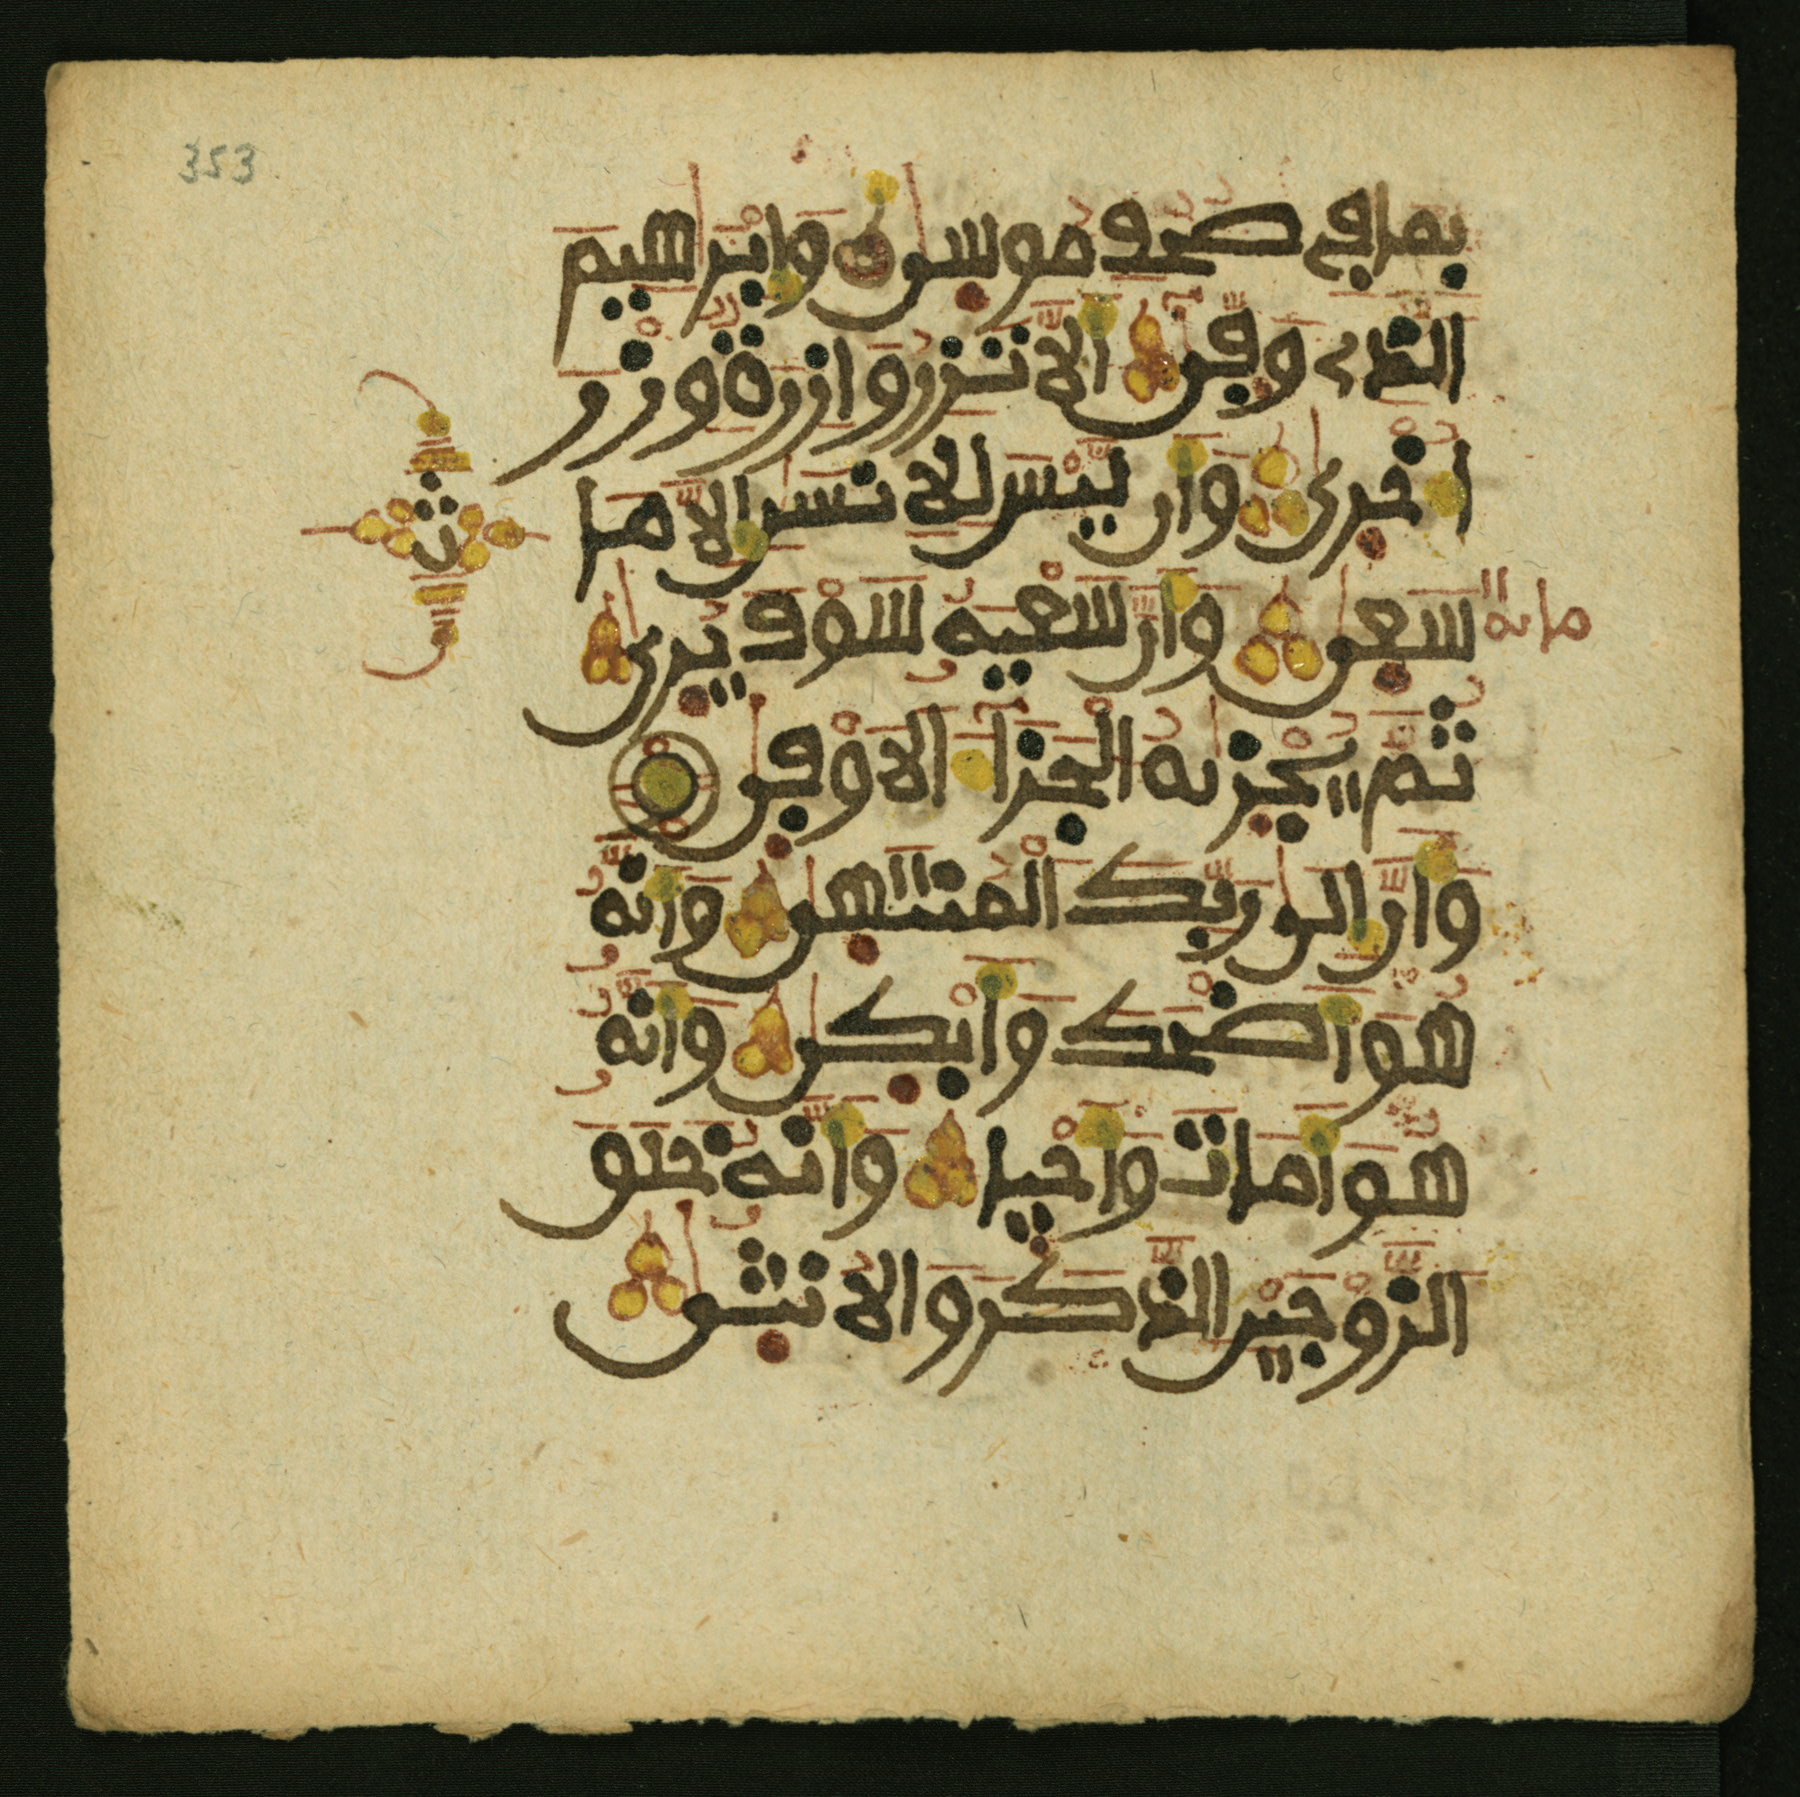 353
بما في صحف موسى وابرهيم
الذى وفى الا تزر وازرة وزر
اخرى وان ليس للانسن الا ما
سعى وان سعيه سوف يرى
ثم يجزىه الجزا الاوفى
وان الى ربك المنتهى وانه
هو اضحك وابكى وانه
هو امات واحيا وانه خلق
الزوجين الذكر والانثى